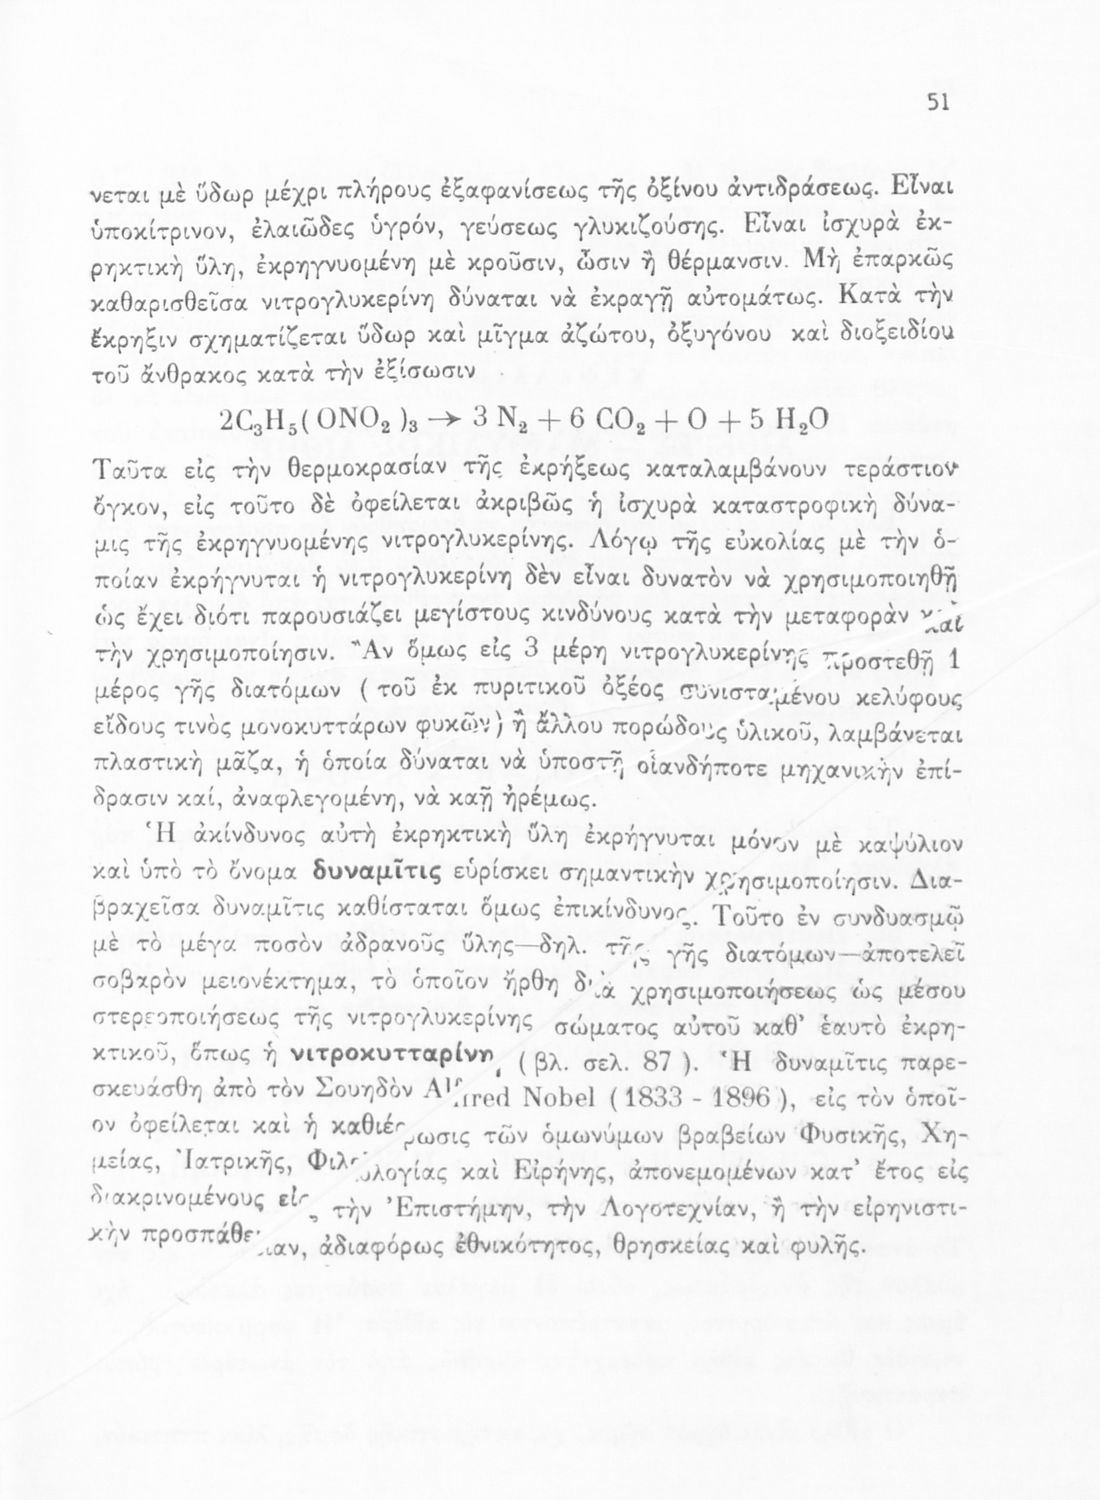 51
νεται μὲ ὕδωρ μέχρι πλήρους ἐξαφανίσεως τῆς ὀξίνου ἀντιδράσεως. Εἶναι
ὑποκίτρινον, ἐλαιῶδες ὑγρόν, γεύσεως γλυκιζούσης. Εἶναι ἰσχυρὰ ἐκ-
ρηκτικὴ ὕλη, ἐκρηγνυομένη μὲ κροῦσιν, ὦσιν ἢ θέρμανσιν. Μὴ ἐπαρκῶς
καθαρισθεῖσα νιτρογλυκερίνη δύναται νὰ ἐκραγῇ αὐτομάτως. Κατὰ τὴν
ἔκρηξιν σχηματίζεται ὕδωρ καὶ μῖγμα ἀζώτου, ὀξυγόνου καὶ διοξειδίου
τοῦ ἄνθρακος κατὰ τὴν ἐξίσωσιν
2C₃H₅( ONO₂ )₃ → 3 N₂ + 6 CO₂ + O + 5 H₂O
Ταῦτα εἰς τὴν θερμοκρασίαν τῆς ἐκρήξεως καταλαμβάνουν τεράστιον
ὄγκον, εἰς τοῦτο δὲ ὀφείλεται ἀκριβῶς ἡ ἰσχυρὰ καταστροφικὴ δύνα-
μις τῆς ἐκρηγνυομένης νιτρογλυκερίνης. Λόγῳ τῆς εὐκολίας μὲ τὴν ὁ-
ποίαν ἐκρήγνυται ἡ νιτρογλυκερίνη δὲν εἶναι δυνατὸν νὰ χρησιμοποιηθῇ
ὡς ἔχει διότι παρουσιάζει μεγίστους κινδύνους κατὰ τὴν μεταφορὰν καὶ
τὴν χρησιμοποίησιν. Ἂν ὅμως εἰς 3 μέρη νιτρογλυκερίνης προστεθῇ 1
μέρος γῆς διατόμων ( τοῦ ἐκ πυριτικοῦ ὀξέος συνισταμένου κελύφους
εἴδους τινὸς μονοκυττάρων φυκῶν ) ἢ ἄλλου πορώδους ὑλικοῦ, λαμβάνεται
πλαστικὴ μᾶζα, ἡ ὁποία δύναται νὰ ὑποστῇ οἱανδήποτε μηχανικὴν ἐπί-
δρασιν καί, ἀναφλεγομένη, νὰ καῇ ἠρέμως.
Ἡ ἀκίνδυνος αὐτὴ ἐκρηκτικὴ ὕλη ἐκρήγνυται μόνον μὲ καψύλιον
καὶ ὑπὸ τὸ ὄνομα δυναμῖτις εὑρίσκει σημαντικὴν χρησιμοποίησιν. Δια-
βραχεῖσα δυναμῖτις καθίσταται ὅμως ἐπικίνδυνος. Τοῦτο ἐν συνδυασμῷ
μὲ τὸ μέγα ποσὸν ἀδρανοῦς ὕλης—δηλ. τῆς γῆς διατόμων—ἀποτελεῖ
σοβαρὸν μειονέκτημα, τὸ ὁποῖον ἤρθη διὰ χρησιμοποιήσεως ὡς μέσου
στερεοποιήσεως τῆς νιτρογλυκερίνης σώματος αὐτοῦ καθ’ ἑαυτὸ ἐκρη-
κτικοῦ, ὅπως ἡ νιτροκυτταρίνη ( βλ. σελ. 87 ). Ἡ δυναμῖτις παρε-
σκευάσθη ἀπὸ τὸν Σουηδὸν Alfred Nobel ( 1833 - 1896 ), εἰς τὸν ὁποῖ-
ον ὀφείλεται καὶ ἡ καθιέρωσις τῶν ὁμωνύμων βραβείων Φυσικῆς, Χη-
μείας, Ἰατρικῆς, Φιλολογίας καὶ Εἰρήνης, ἀπονεμομένων κατ’ ἔτος εἰς
διακρινομένους εἰς τὴν Ἐπιστήμην, τὴν Λογοτεχνίαν, ἢ τὴν εἰρηνιστι-
κὴν προσπάθειαν, ἀδιαφόρως ἐθνικότητος, θρησκείας καὶ φυλῆς.